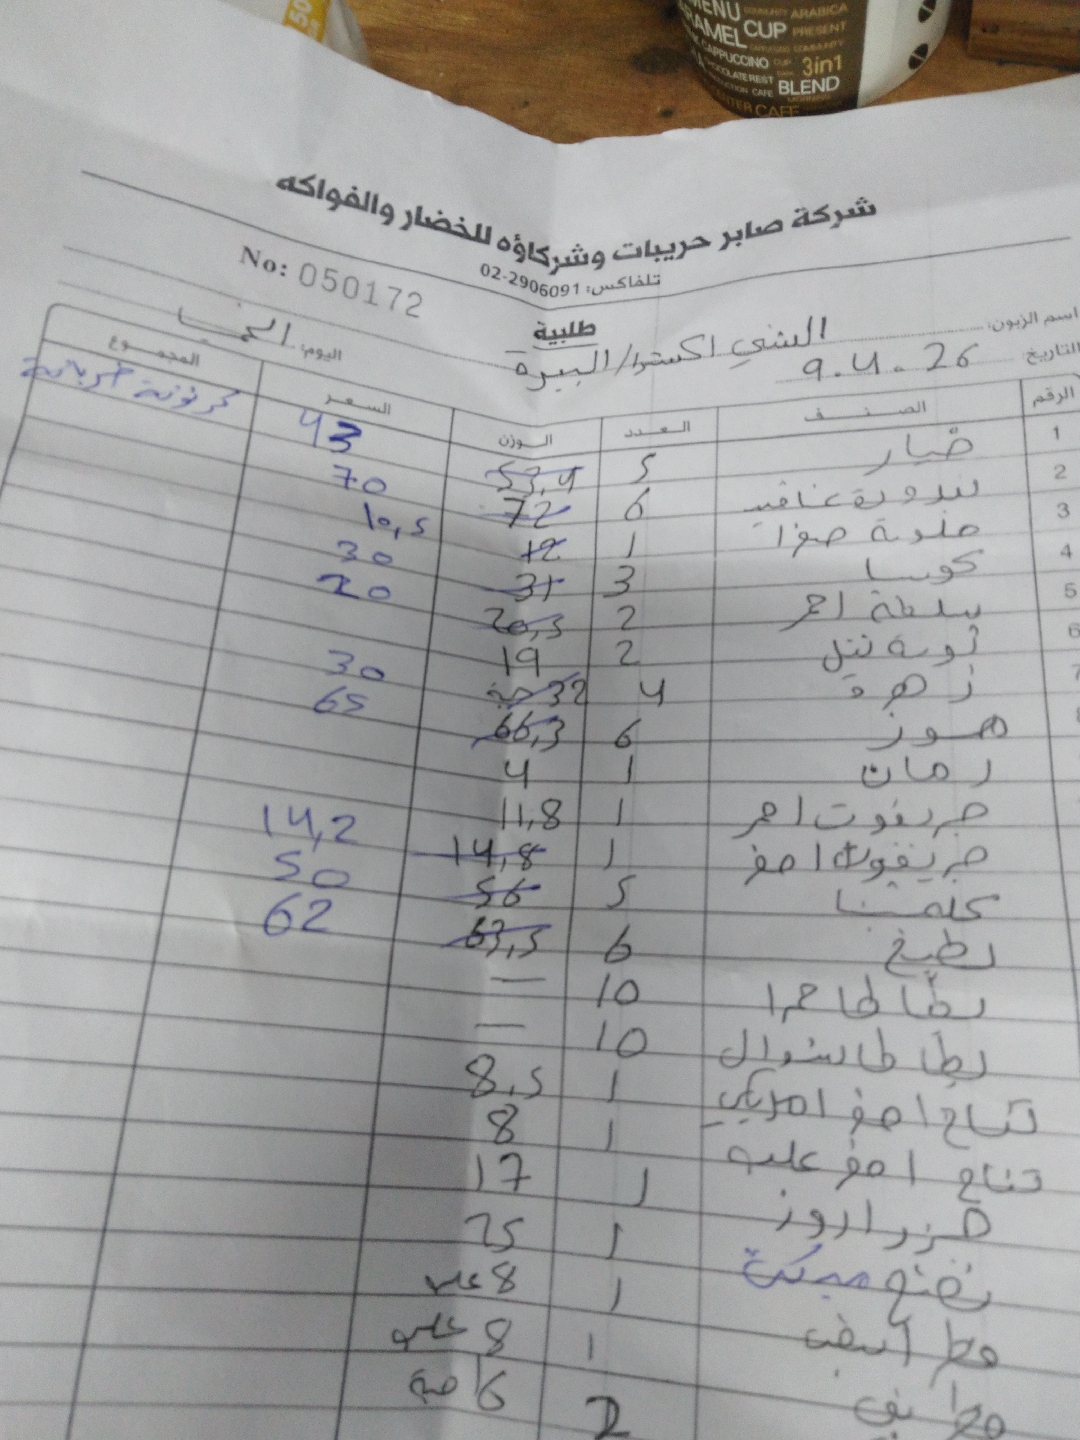 MENU
COMMUNITY ARABICA
CARAMEL CUP PRESENT
CAPPUCCINO CUP 3in1
BLEND
CENTER CAFE
شركة صابر حريبات وشركاؤه للخضار والفواكه
تلفاكس: 02-2906091
No: 050172
طلبية
اسم الزبون: الشني اكسترا/البيرة
اليوم:
التاريخ: 9.4.26
الرقم الصنف العدد الوزن السعر المجموع
1 خيار 5 53,4 43
2 بندورة عناقيد 6 72 70
3 1 12 10,5
4 كوسا 3 31 30
5 احمر 2 20,5 20
6 2 19
7 زهرة 4 32 30
8 موز 6 66,3 65
رمان 1 4
جريفوت احمر 1 11,8
جريفوت اصفر 1 14,8 14,2
كلمنتينا 5 56 50
بطيخ 6 63,5 62
بطاطا حمرا 10 —
بطاطا شوال 10 —
تفاح اصفر امريكي 1 8,5
تفاح اصفر علبه 1 8
جزر اروز 1 17
1 25
فطر ابيض 1 8 علبه
1 8 علبه
2 16 حبه